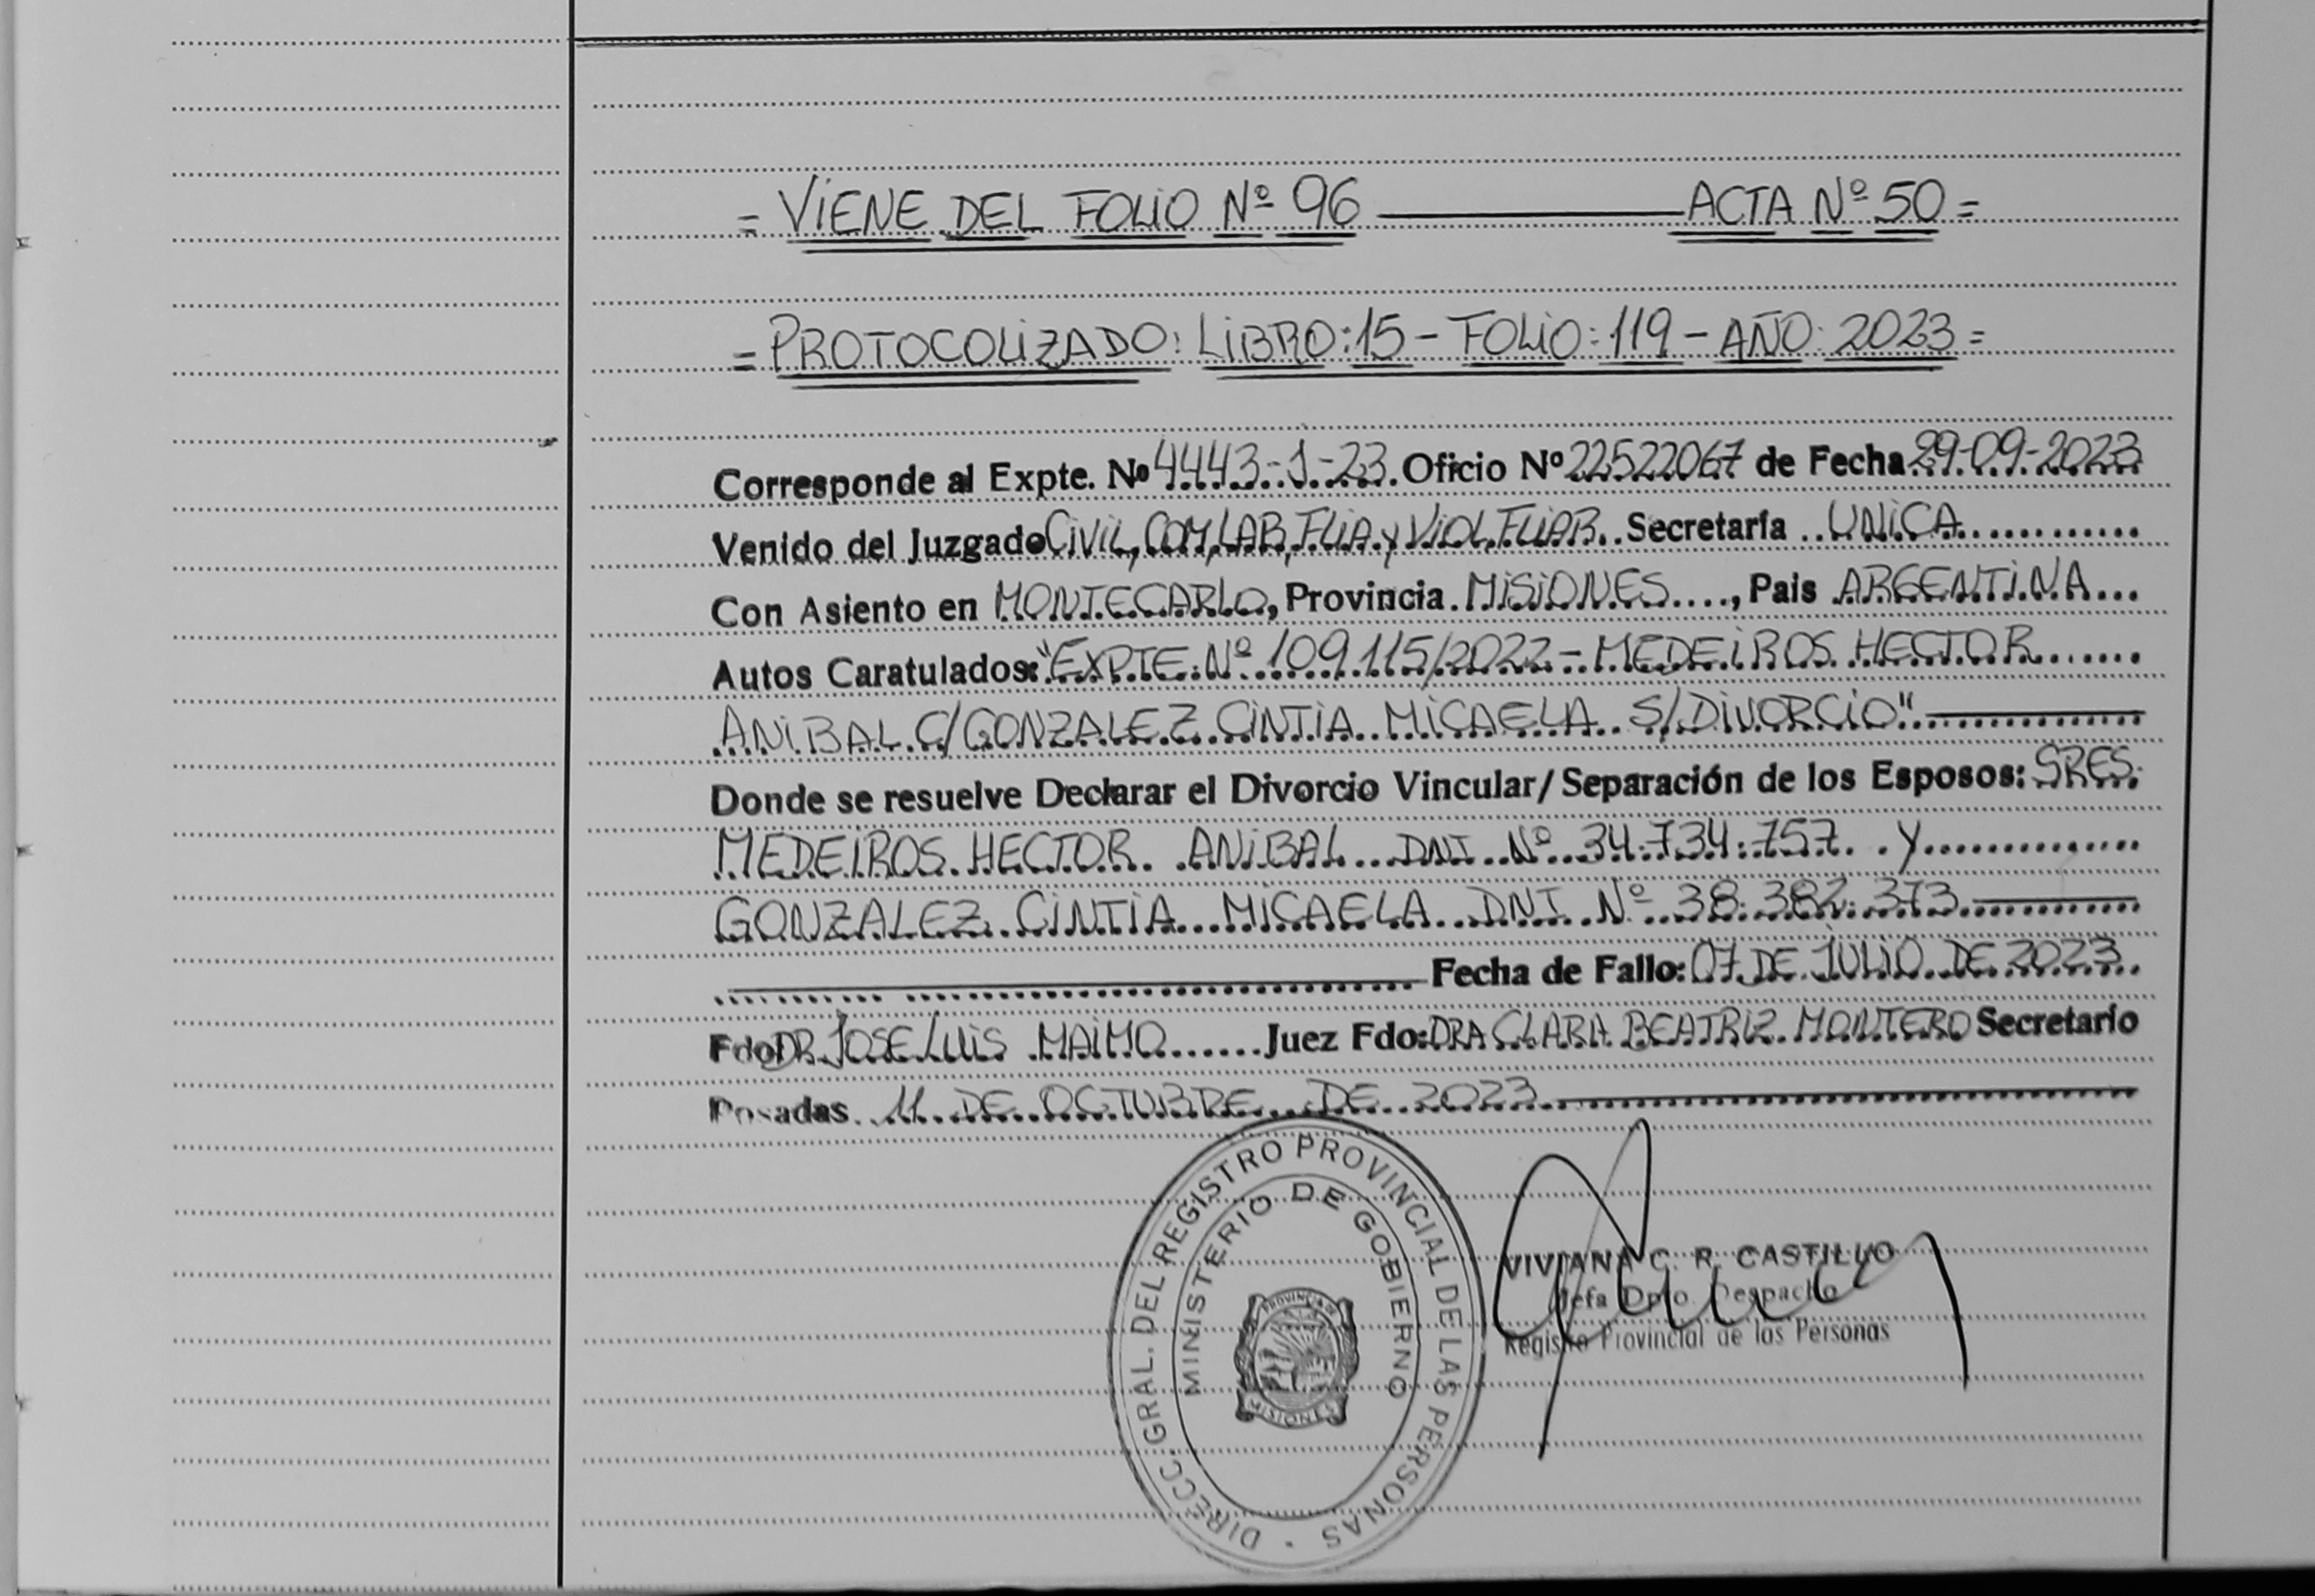 = VIENE DEL FOLIO Nº 96 ——— ACTA Nº 50 =
= PROTOCOLIZADO: LIBRO: 15 - FOLIO: 119 - AÑO: 2023 =
Corresponde al Expte. Nº 4443-1-23. Oficio Nº 22522067 de Fecha 29-09-2023
Venido del Juzgado CIVIL, COM, LAB, FLIA y VIOL. FLIAR. Secretaría UNICA
Con Asiento en MONTECARLO, Provincia MISIONES, País ARGENTINA
Autos Caratulados: "EXPTE. Nº 109.115/2022 - MEDEIROS HECTOR
ANIBAL C/GONZALEZ CINTIA MICAELA S/DIVORCIO".
Donde se resuelve Declarar el Divorcio Vincular/Separación de los Esposos: SRES.
MEDEIROS HECTOR ANIBAL DNI Nº 34.734.757 y
GONZALEZ CINTIA MICAELA DNI Nº 38.382.373
Fecha de Fallo: 07 DE JULIO DE 2023
Fdo DR. JOSE LUIS MAIMO Juez Fdo: DRA CLARA BEATRIZ MONTERO Secretario
Posadas 11 DE OCTUBRE DE 2023
DIRECC. GRAL. DEL REGISTRO PROVINCIAL DE LAS PERSONAS
MINISTERIO DE GOBIERNO
PROVINCIA DE
MISIONES
VIVIANA C. R. CASTILLO
Jefa Dpto. Despacho
Registro Provincial de las Personas